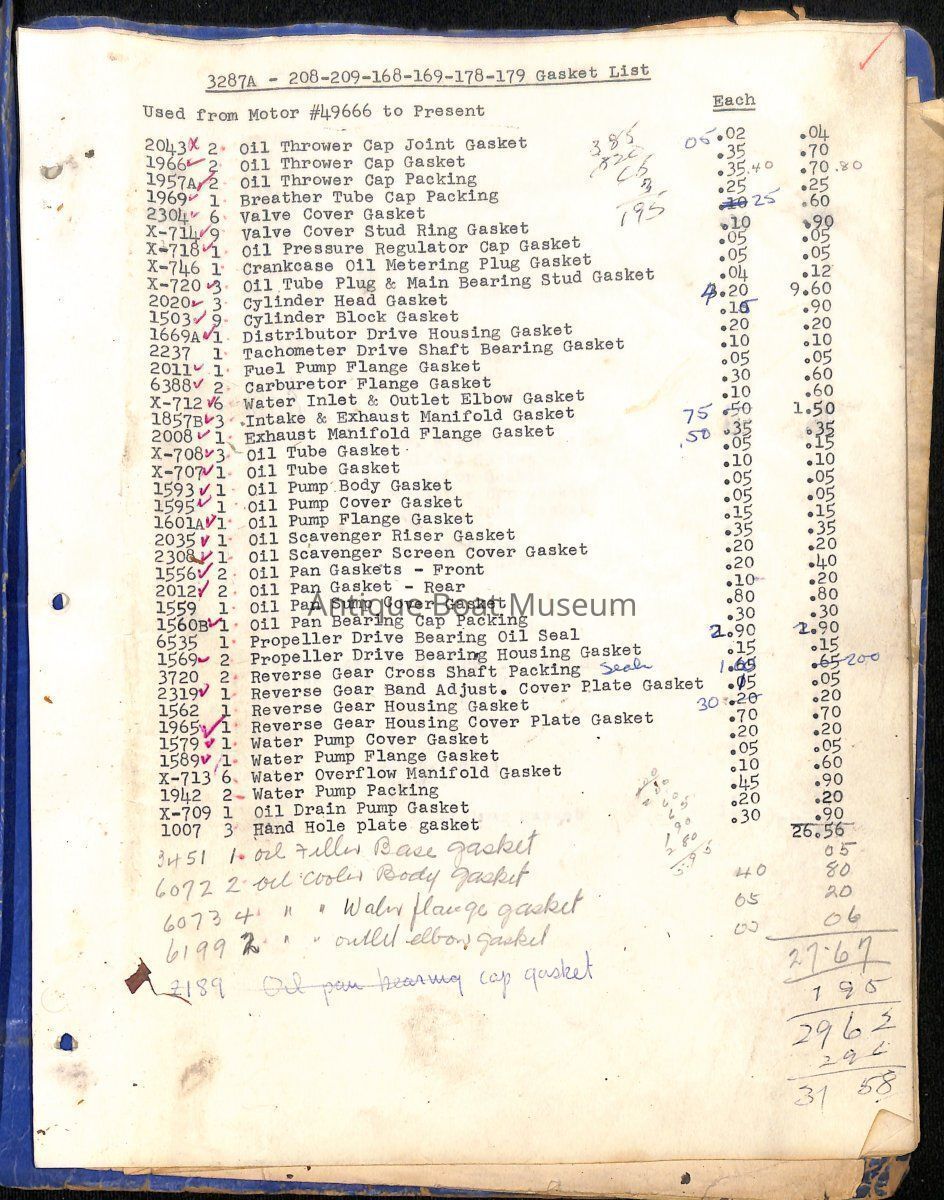 3287A - 208-209-168-169-178-179 Gasket List
Used from Motor #49666 to Present Each
2043 x 2 Oil Thrower Cap Joint Gasket 385 05 .02 .04
1966 ✓ 2 Oil Thrower Cap Gasket .35 .70
1957A ✓ 2 Oil Thrower Cap Packing .35 .40 .70 .80
1969 ✓ 1 Breather Tube Cap Packing .25 .25
2304 ✓ 6 Valve Cover Gasket 195 .10 25 .60
X-714 ✓ 9 Valve Cover Stud Ring Gasket .10 .90
X-718 ✓ 1 Oil Pressure Regulator Cap Gasket .05 .05
X-746 1 Crankcase Oil Metering Plug Gasket .05 .05
X-720 ✓ 3 Oil Tube Plug & Main Bearing Stud Gasket .04 .12
2020 ✓ 3 Cylinder Head Gasket 3.20 9.60
1503 ✓ 9 Cylinder Block Gasket .10 .90
1669A ✓ 1 Distributor Drive Housing Gasket .20 .20
2237 1 Tachometer Drive Shaft Bearing Gasket .10 .10
2011 ✓ 1 Fuel Pump Flange Gasket .05 .05
6388 ✓ 2 Carburetor Flange Gasket .30 .60
X-712 ✓ 6 Water Inlet & Outlet Elbow Gasket .10 .60
1857B ✓ 3 Intake & Exhaust Manifold Gasket 75 .50 1.50
2008 ✓ 1 Exhaust Manifold Flange Gasket .50 .35 .35
X-708 ✓ 3 Oil Tube Gasket .05 .15
X-707 ✓ 1 Oil Tube Gasket .10 .10
1593 ✓ 1 Oil Pump Body Gasket .05 .05
1595 ✓ 1 Oil Pump Cover Gasket .05 .05
1601A ✓ 1 Oil Pump Flange Gasket .15 .15
2035 ✓ 1 Oil Scavenger Riser Gasket .35 .35
2308 ✓ 1 Oil Scavenger Screen Cover Gasket .20 .20
1556 ✓ 2 Oil Pan Gaskets - Front .20 .40
2012 ✓ 2 Oil Pan Gasket - Rear .10 .20
1559 1 Oil Pan Sump Cover Gasket .80 .80
Antique Boat Museum
1560B ✓ 1 Oil Pan Bearing Cap Packing .30 .30
6535 1 Propeller Drive Bearing Oil Seal 2.90 2.90
1569 ✓ 2 Propeller Drive Bearing Housing Gasket .15 .15
3720 2 Reverse Gear Cross Shaft Packing Seal 1.05 .65 200
2319 ✓ 1 Reverse Gear Band Adjust. Cover Plate Gasket .05 .05
1562 1 Reverse Gear Housing Gasket 30 .20 .20
1965 ✓ 1 Reverse Gear Housing Cover Plate Gasket .70 .70
1579 ✓ 1 Water Pump Cover Gasket .20 .20
1589 ✓ 1 Water Pump Flange Gasket .05 .05
X-713 6 Water Overflow Manifold Gasket .10 .60
1942 2 Water Pump Packing .45 .90
X-709 1 Oil Drain Pump Gasket .20 .20
1007 3 Hand Hole plate gasket .30 .90
26.56
3451 1 oil Filler Base gasket 05
6072 2 oil cooler Body gasket 40 80
6073 4 " " Water flange gasket 05 20
6199 2 " " outlet elbow gasket 03 06
27.67
2189 Oil pan bearing cap gasket
195
2962
296
31 58